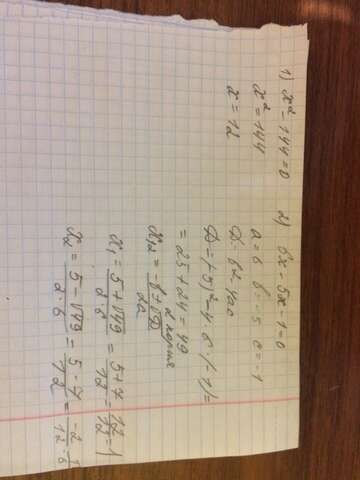 1) x² - 144 = 0
x² = 144
x = 12
2) 6x - 5x - 1 = 0
a = 6 b = -5 c = -1
D = b² - 4ac
D = (-5)² - 4 · 6 · (-1) =
= 25 + 24 = 49
2 корня
x₁,₂ = (-b ± √D) / 2a
x₁ = (5 + √49) / (2 · 6) = (5 + 7) / 12 = 12 / 12 = 1
x₂ = (5 - √49) / (2 · 6) = (5 - 7) / 12 = -2 / 12